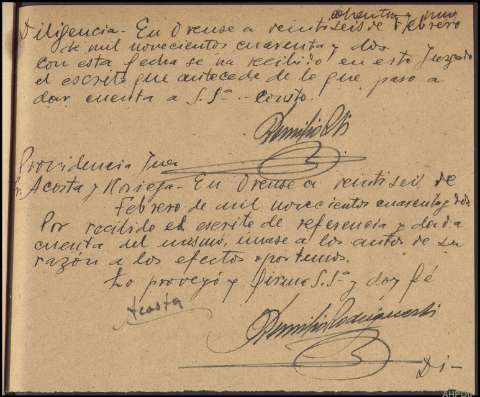 ochenta y uno
Diligencia.- En Orense a veintiseis de Febrero
de mil novecientos cuarenta y dos
con esta fecha se ha recibido en este Juzgado
el escrito que antecede de lo que paso a
dar cuenta a S.Sª - Consto.
Providencia Juez
Sr. Acosta y Noriega - En Orense a veintiseis de
Febrero de mil novecientos cuarenta y dos
Por recibido el escrito de referencia y dada
cuenta del mismo, unase a los autos de su
razón a los efectos oportunos.
Lo proveyó y firma S.Sª y doy fé
Acosta
Di-